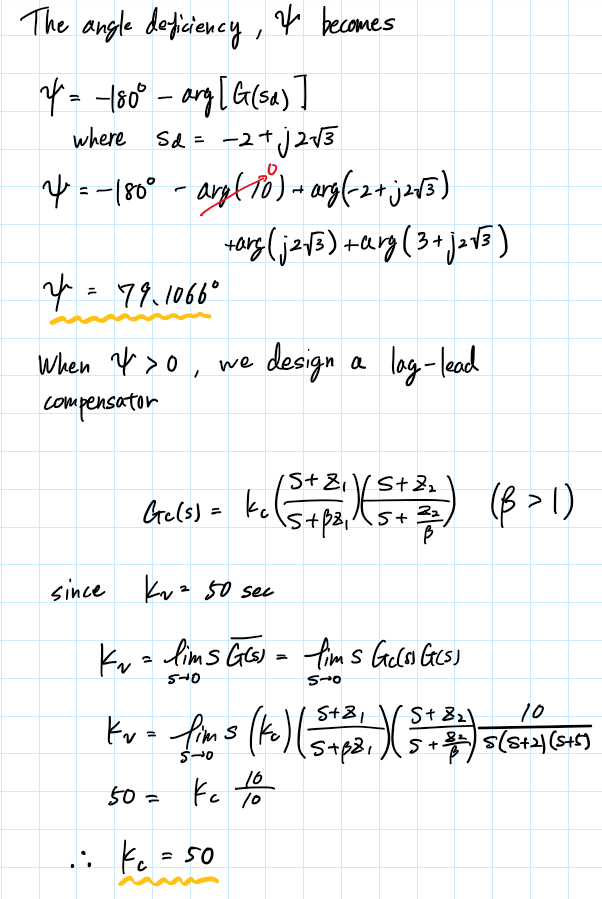 The angle deficiency, Ψ becomes
Ψ = -180° - arg[G(sd)]
where sd = -2 + j2√3
Ψ = -180° - arg(10) + arg(-2+j2√3)
0
+arg(j2√3) + arg(3+j2√3)
Ψ = 79.1066°
When Ψ > 0, we design a lag-lead
compensator
Gc(s) = kc ((s+z1)/(s+βz1)) ((s+z2)/(s+z2/β)) (β > 1)
since Kv = 50 sec
Kv = lim s→0 s G(s)‾ = lim s→0 s Gc(s) G(s)
Kv = lim s→0 s (kc) ((s+z1)/(s+βz1)) ((s+z2)/(s+z2/β)) 10/(s(s+2)(s+5))
50 = kc 10/10
∴ kc = 50